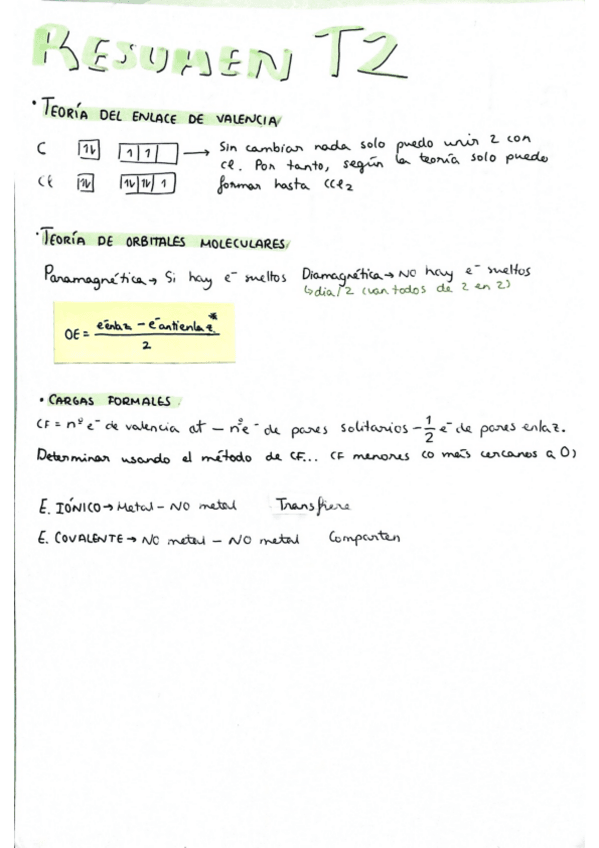 RESUMEN T2
· TEORÍA DEL ENLACE DE VALENCIA
C 1L 1 1 → Sin cambiar nada solo puedo unir 2 con
Cl 1L 1L 1L 1 Cl. Por tanto, según la teoría solo puede
formar hasta CCl2
· TEORÍA DE ORBITALES MOLECULARES
Paramagnética → Si hay e⁻ sueltos Diamagnética → NO hay e⁻ sueltos
↳ dia/2 (van todos de 2 en 2)
OE = e⁻enlaz - e⁻antienlaz* / 2
· CARGAS FORMALES
CF = nº e⁻ de valencia at - nº e⁻ de pares solitarios - 1/2 e⁻ de pares enlaz.
Determinar usando el método de CF... CF menores (o más cercanos a 0)
E. IÓNICO → Metal - NO metal Transfiere
E. COVALENTE → NO metal - NO metal Comparten